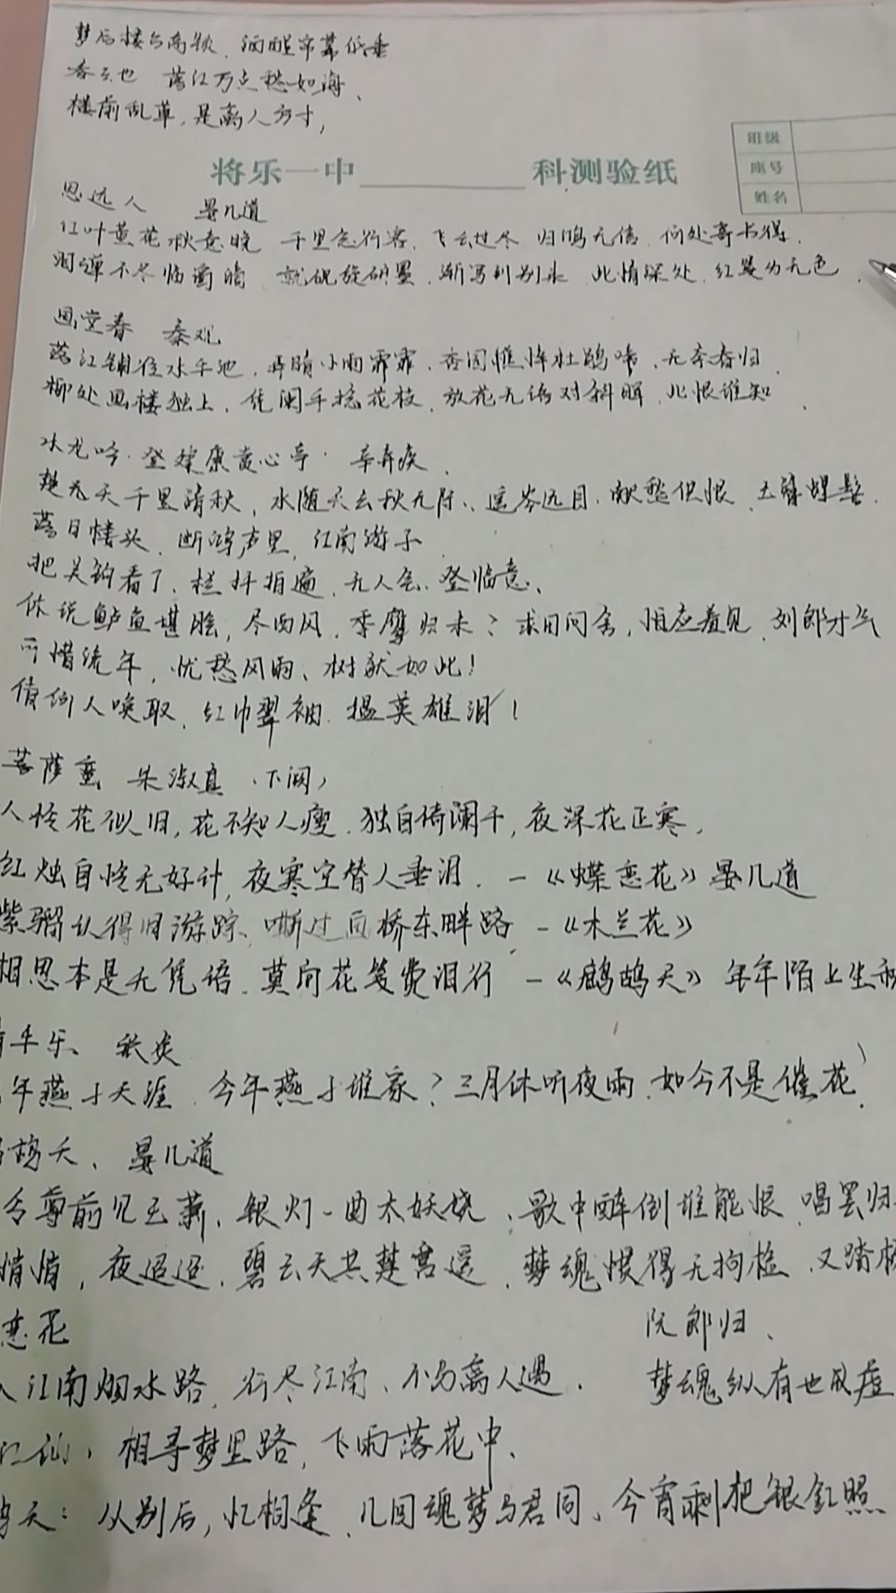 梦后楼台高锁、酒醒帘幕低垂
春去也 落红万点愁如海、
楼前乱草,是离人方寸,
班级
座号
姓名
将乐一中 科测验纸
思远人 晏几道
红叶黄花秋意晚 千里念行客、飞云过尽 归鸿无信、何处寄书得、
泪弹不尽临窗滴 就砚旋研墨、渐写到别来 此情深处、红笺为无色、
画堂春 秦观
落红铺径水平池、弄晴小雨霏霏、杏园憔悴杜鹃啼、无奈春归、
柳外画楼独上、凭阑手捻花枝、放花无语对斜晖、此恨谁知、
水龙吟·登建康赏心亭· 辛弃疾、
楚天千里清秋,水随天去秋无际、遥岑远目、献愁供恨、玉簪螺髻、
落日楼头、断鸿声里、江南游子、
把吴钩看了、栏杆拍遍、无人会、登临意、
休说鲈鱼堪脍,尽西风,季鹰归未?求田问舍,怕应羞见、刘郎才气
可惜流年,忧愁风雨、树犹如此!
倩何人唤取、红巾翠袖、揾英雄泪!
菩萨蛮 朱淑真(下阕)
人怜花似旧,花不知人瘦、独自倚阑干,夜深花正寒、
红烛自怜无好计,夜寒空替人垂泪、-《蝶恋花》晏几道
紫骝认得旧游踪、嘶过画桥东畔路、-《木兰花》
相思本是无凭语、莫向花笺费泪行 -《鹧鸪天》 年年陌上生秋
平乐、张炎
年燕子天涯、今年燕子谁家?三月休听夜雨、如今不是催花、
鸪天、晏几道
令尊前见玉箫、银灯一曲太妖娆、歌中醉倒谁能恨、唱罢归
悄悄,夜迢迢、碧云天共楚宫遥、梦魂惯得无拘检、又踏杨
恋花
阮郎归、
入江南烟水路、行尽江南、不与离人遇、 梦魂纵有也成虚
江仙:相寻梦里路,飞雨落花中、
鸪天:从别后,忆相逢、几回魂梦与君同、今宵剩把银釭照